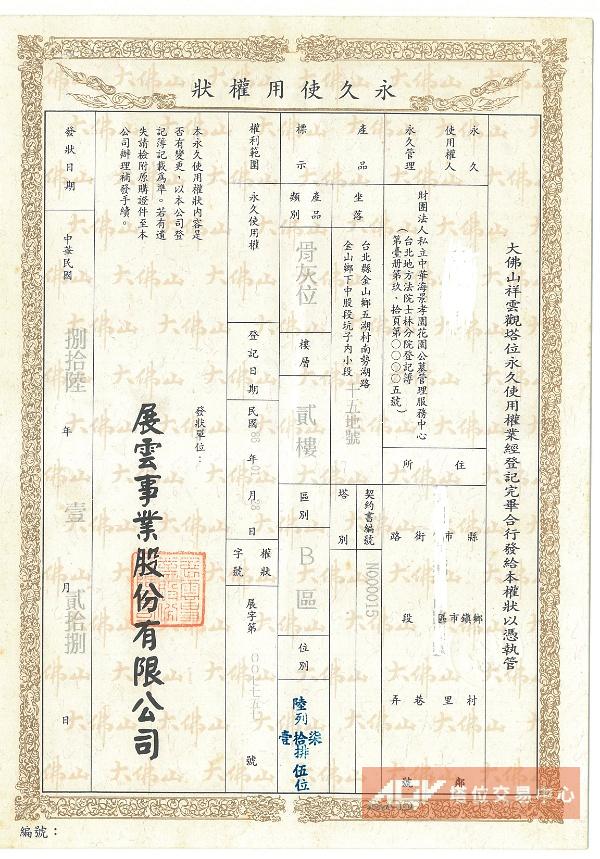 永久使用權狀
大佛山祥雲觀塔位永久使用權業經登記完畢合行發給本權狀以憑執管
永久使用權人
住所
縣市 鄉鎮市區 村里 鄰
路街 段 巷 弄 號
永久管理
財團法人私立中華海景孝園花園公墓管理服務中心
(台北地方法院士林分院登記簿
第臺冊第玖、拾頁第〇〇〇〇五號)
產品標示
坐落
台北縣金山鄉五湖村南勢湖路
金山鄉下中股段坑子內小段
十五地號
塔別
契約書編號
N000015
產品類別
骨灰位
樓層
貳樓
區別
B區
位別
陸列
柒拾壹排
伍位
權利範圍
永久使用權
登記日期
民國88年01月28日
權狀字號
展字第 號
本永久使用權狀內容是
否有變更，以本公司登
記簿記載為準。若有遺
失請檢附原購證件至本
公司辦理補發手續。
發狀單位：
展雲事業股份有限公司
發狀日期
中華民國 捌拾陸 年 壹 月 貳拾捌 日
編號：
塔位交易中心